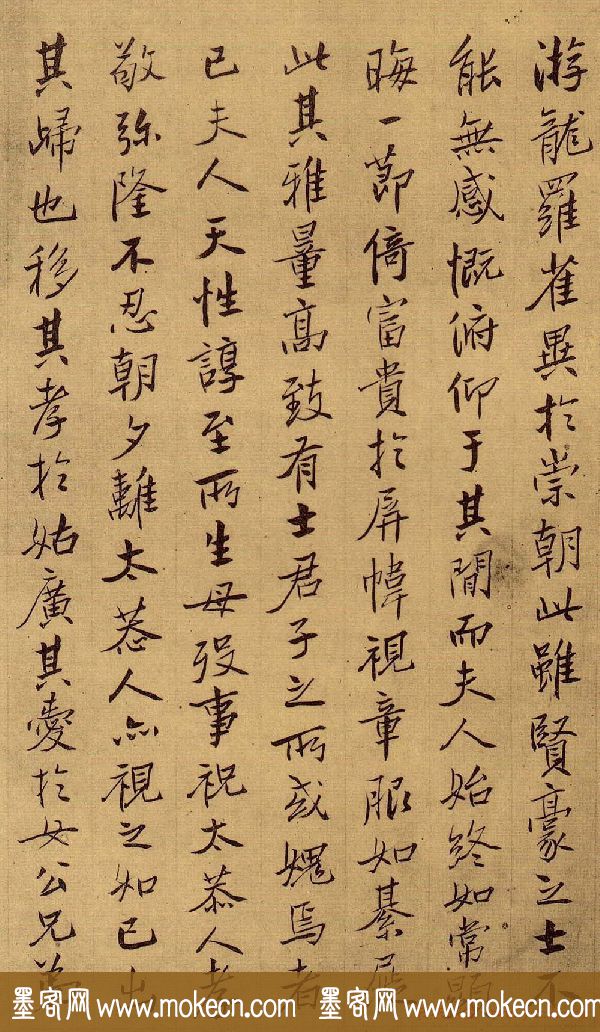 游龍羅雀異於崇朝此雖賢豪之士不
能無感慨俯仰于其間而夫人始終如常顯
晦一節倚富貴於屏幃視章服如綦屨
此其雅量高致有士君子之所或媿焉者
已夫人天性諄至所生母歿事祝太恭人孝
敬弥隆不忍朝夕離太恭人亦視之如已出
其歸也移其孝於姑廣其愛於女公兄弟
墨客网 www.mokecn.com 墨客网 www.mokecn.com 墨客网